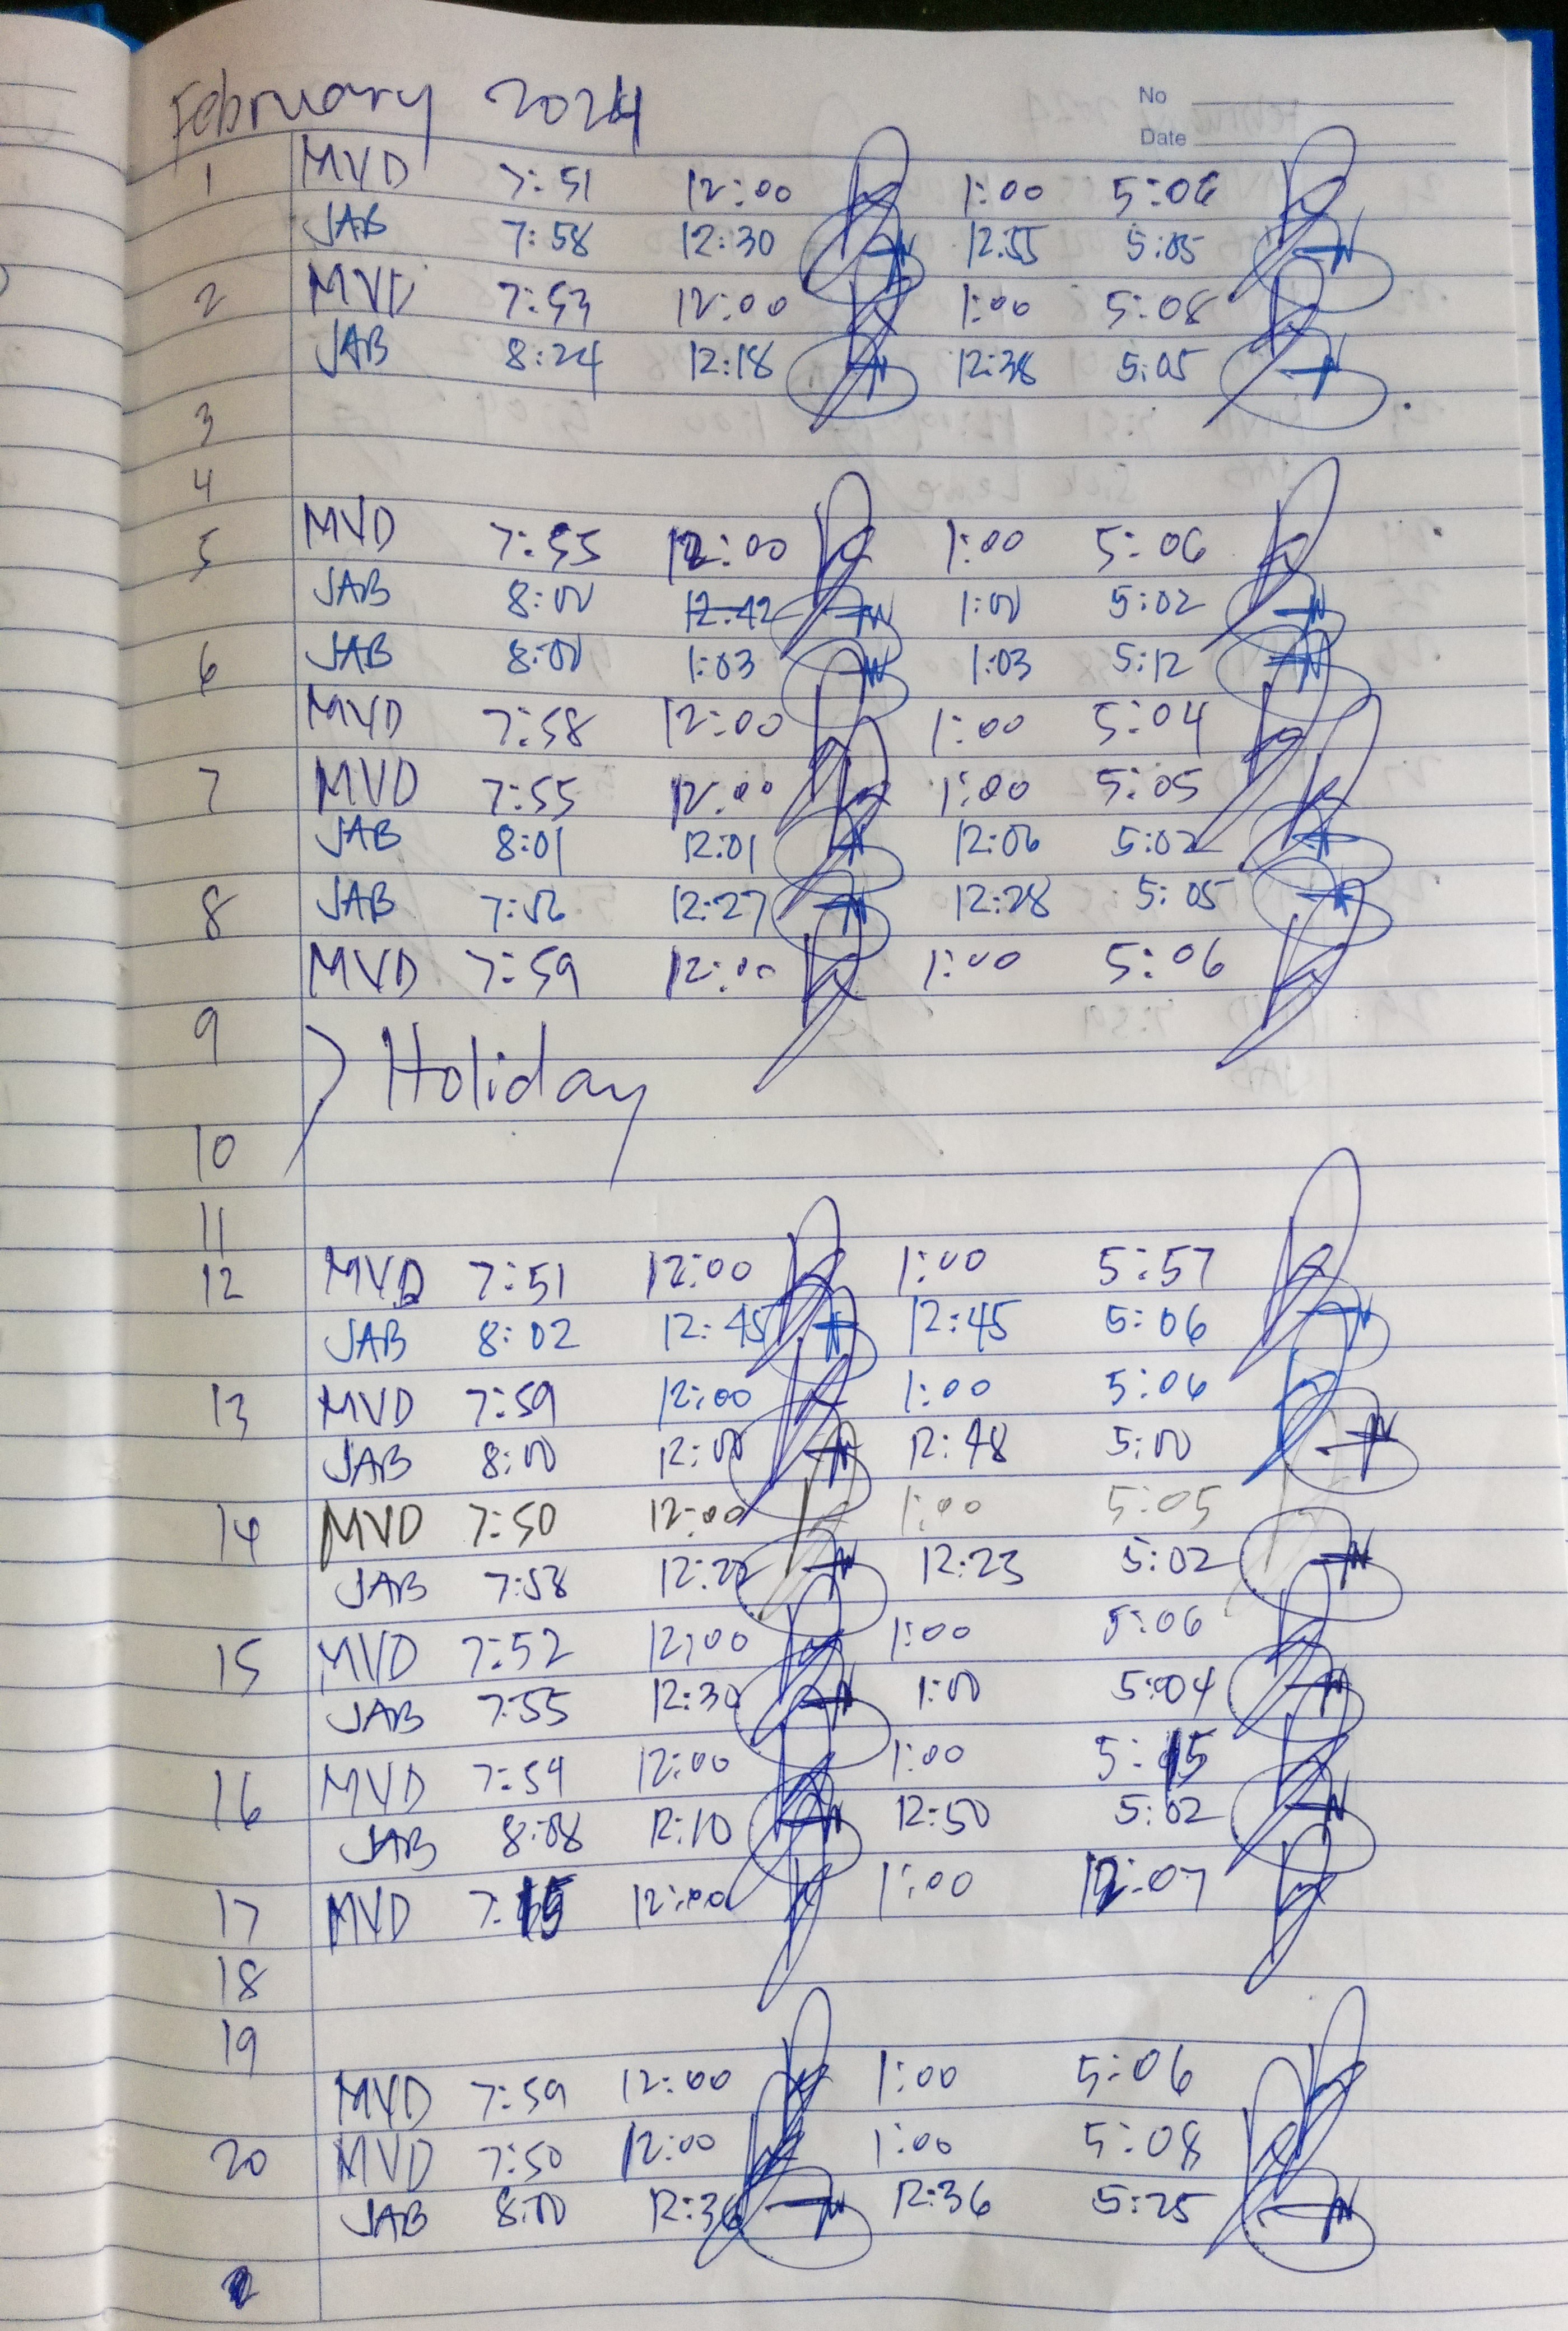 No
Date
February 2024
1 MVD 7:51 12:00 1:00 5:06
JAB 7:58 12:30 12:55 5:05
2 MVD 7:53 12:00 1:00 5:08
JAB 8:24 12:18 12:38 5:05
3
4
5 MVD 7:55 12:00 1:00 5:06
JAB 8:00 12:42 1:00 5:02
6 JAB 8:00 1:03 1:03 5:12
MVD 7:58 12:00 1:00 5:04
7 MVD 7:55 12:00 1:00 5:05
JAB 8:01 12:01 12:06 5:02
8 JAB 7:56 12:27 12:28 5:05
MVD 7:59 12:00 1:00 5:06
9
Holiday
10
11
12 MVD 7:51 12:00 1:00 5:57
JAB 8:02 12:45 12:45 5:06
13 MVD 7:59 12:00 1:00 5:06
JAB 8:00 12:00 12:48 5:00
14 MVD 7:50 12:00 1:00 5:05
JAB 7:58 12:23 5:02
15 MVD 7:52 12:00 1:00 5:06
JAB 7:55 12:30 1:00 5:04
16 MVD 7:59 12:00 1:00 5:15
JAB 8:08 12:10 12:50 5:02
17 MVD 12:00 1:00 12:07
18
19
MVD 7:59 12:00 1:00 5:06
20 MVD 7:50 12:00 1:00 5:08
JAB 8:00 12:36 12:36 5:25